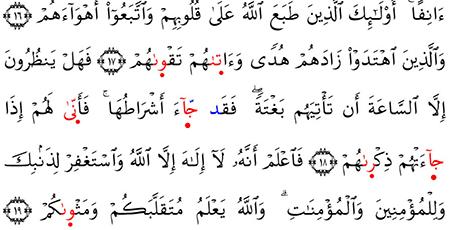 ءَانِفًا ۚ أُوْلَٰٓئِكَ ٱلَّذِينَ طَبَعَ ٱللَّهُ عَلَىٰ قُلُوبِهِمْ وَٱتَّبَعُوٓاْ أَهْوَآءَهُمْ ﴿١٦﴾
وَٱلَّذِينَ ٱهْتَدَوْاْ زَادَهُمْ هُدًى وَءَاتَىٰهُمْ تَقْوَىٰهُمْ ﴿١٧﴾ فَهَلْ يَنظُرُونَ
إِلَّا ٱلسَّاعَةَ أَن تَأْتِيَهُم بَغْتَةً ۖ فَقَد جَّآءَ أَشْرَاطُهَا ۚ فَأَنَّىٰ لَهُمْ إِذَا
جَآءَتْهُمْ ذِكْرَىٰهُمْ ﴿١٨﴾ فَٱعْلَمْ أَنَّهُۥ لَآ إِلَٰهَ إِلَّا ٱللَّهُ وَٱسْتَغْفِرْ لِذَنۢبِكَ
وَلِلْمُؤْمِنِينَ وَٱلْمُؤْمِنَٰتِ ۗ وَٱللَّهُ يَعْلَمُ مُتَقَلَّبَكُمْ وَمَثْوَىٰكُمْ ﴿١٩﴾